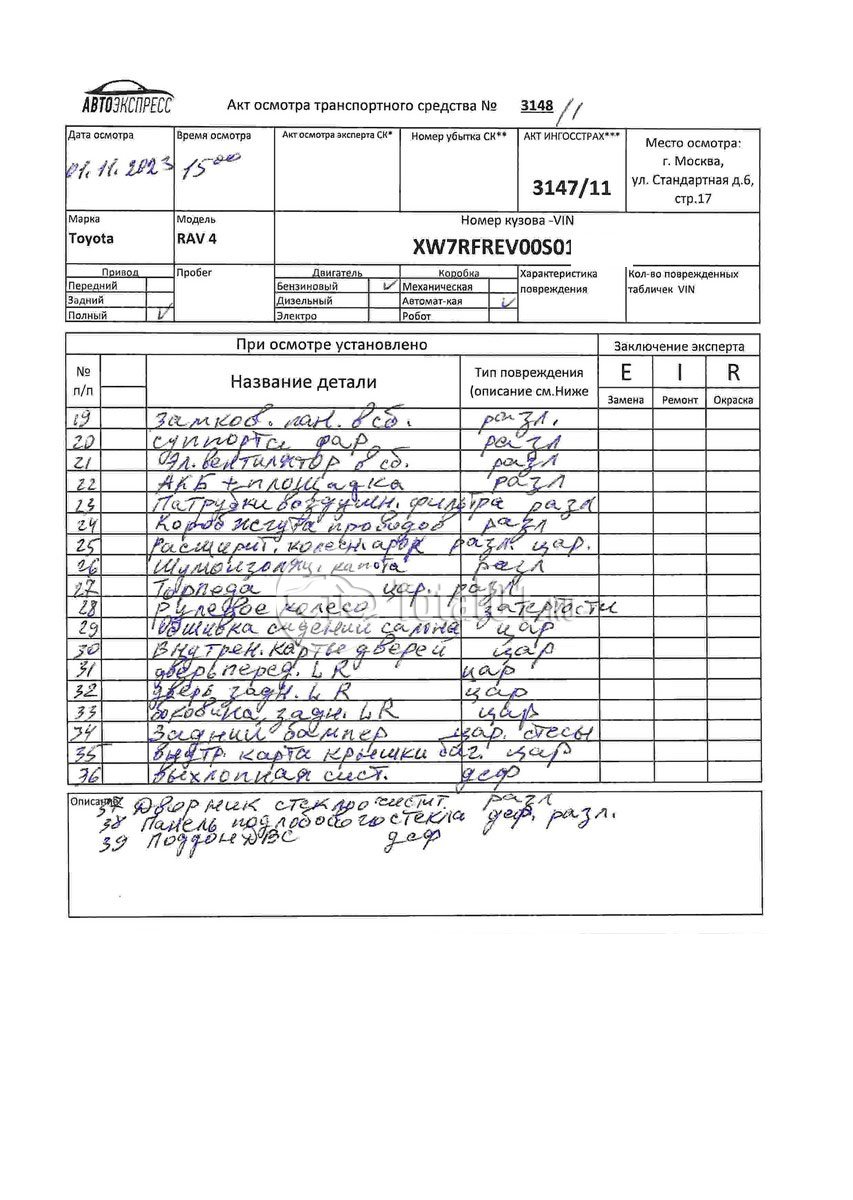 АВТОЭКСПРЕСС
Акт осмотра транспортного средства № 3148/11
Дата осмотра Время осмотра Акт осмотра эксперта СК* Номер убытка СК** АКТ ИНГОССТРАХ*** Место осмотра:
01.11.2023 15 00 3147/11 г. Москва,
ул. Стандартная д.6,
стр.17
Марка Модель Номер кузова -VIN
Toyota RAV 4 XW7RFREV00S01
Привод Пробег Двигатель Коробка Характеристика повреждения Кол-во поврежденных табличек VIN
Передний Бензиновый ✓ Механическая
Задний Дизельный Автомат-кая ✓
Полный ✓ Электро Робот
При осмотре установлено Заключение эксперта
№ п/п Название детали Тип повреждения (описание см.Ниже E I R
Замена Ремонт Окраска
19 Замков. пан. в сб. разл.
20 суппорта фар разл
21 Эл. вентилятор в сб. разл
22 АКБ + площадка разл
23 Патрубки воздушн. фильтра разл
24 Короб жгута проводов разл
25 Расширит. колесн. арок разл. цар.
26 Шумоизоляц. капота разл
27 Торпеда цар. разл
28 Рулевое колесо затертости
29 Обшивка сидений салона цар
30 Внутрен. карты дверей цар
31 дверь перед. L R цар
32 дверь задн. L R цар
33 боковина задн. L R цар
34 Задний бампер цар. стесы
35 внутр. карта крышки баг. цар
36 выхлопная сист. деф
Описание
37 Дворник стеклоочистит. разл
38 Панель под лобового стекла деф. разл.
39 Поддон ДВС деф